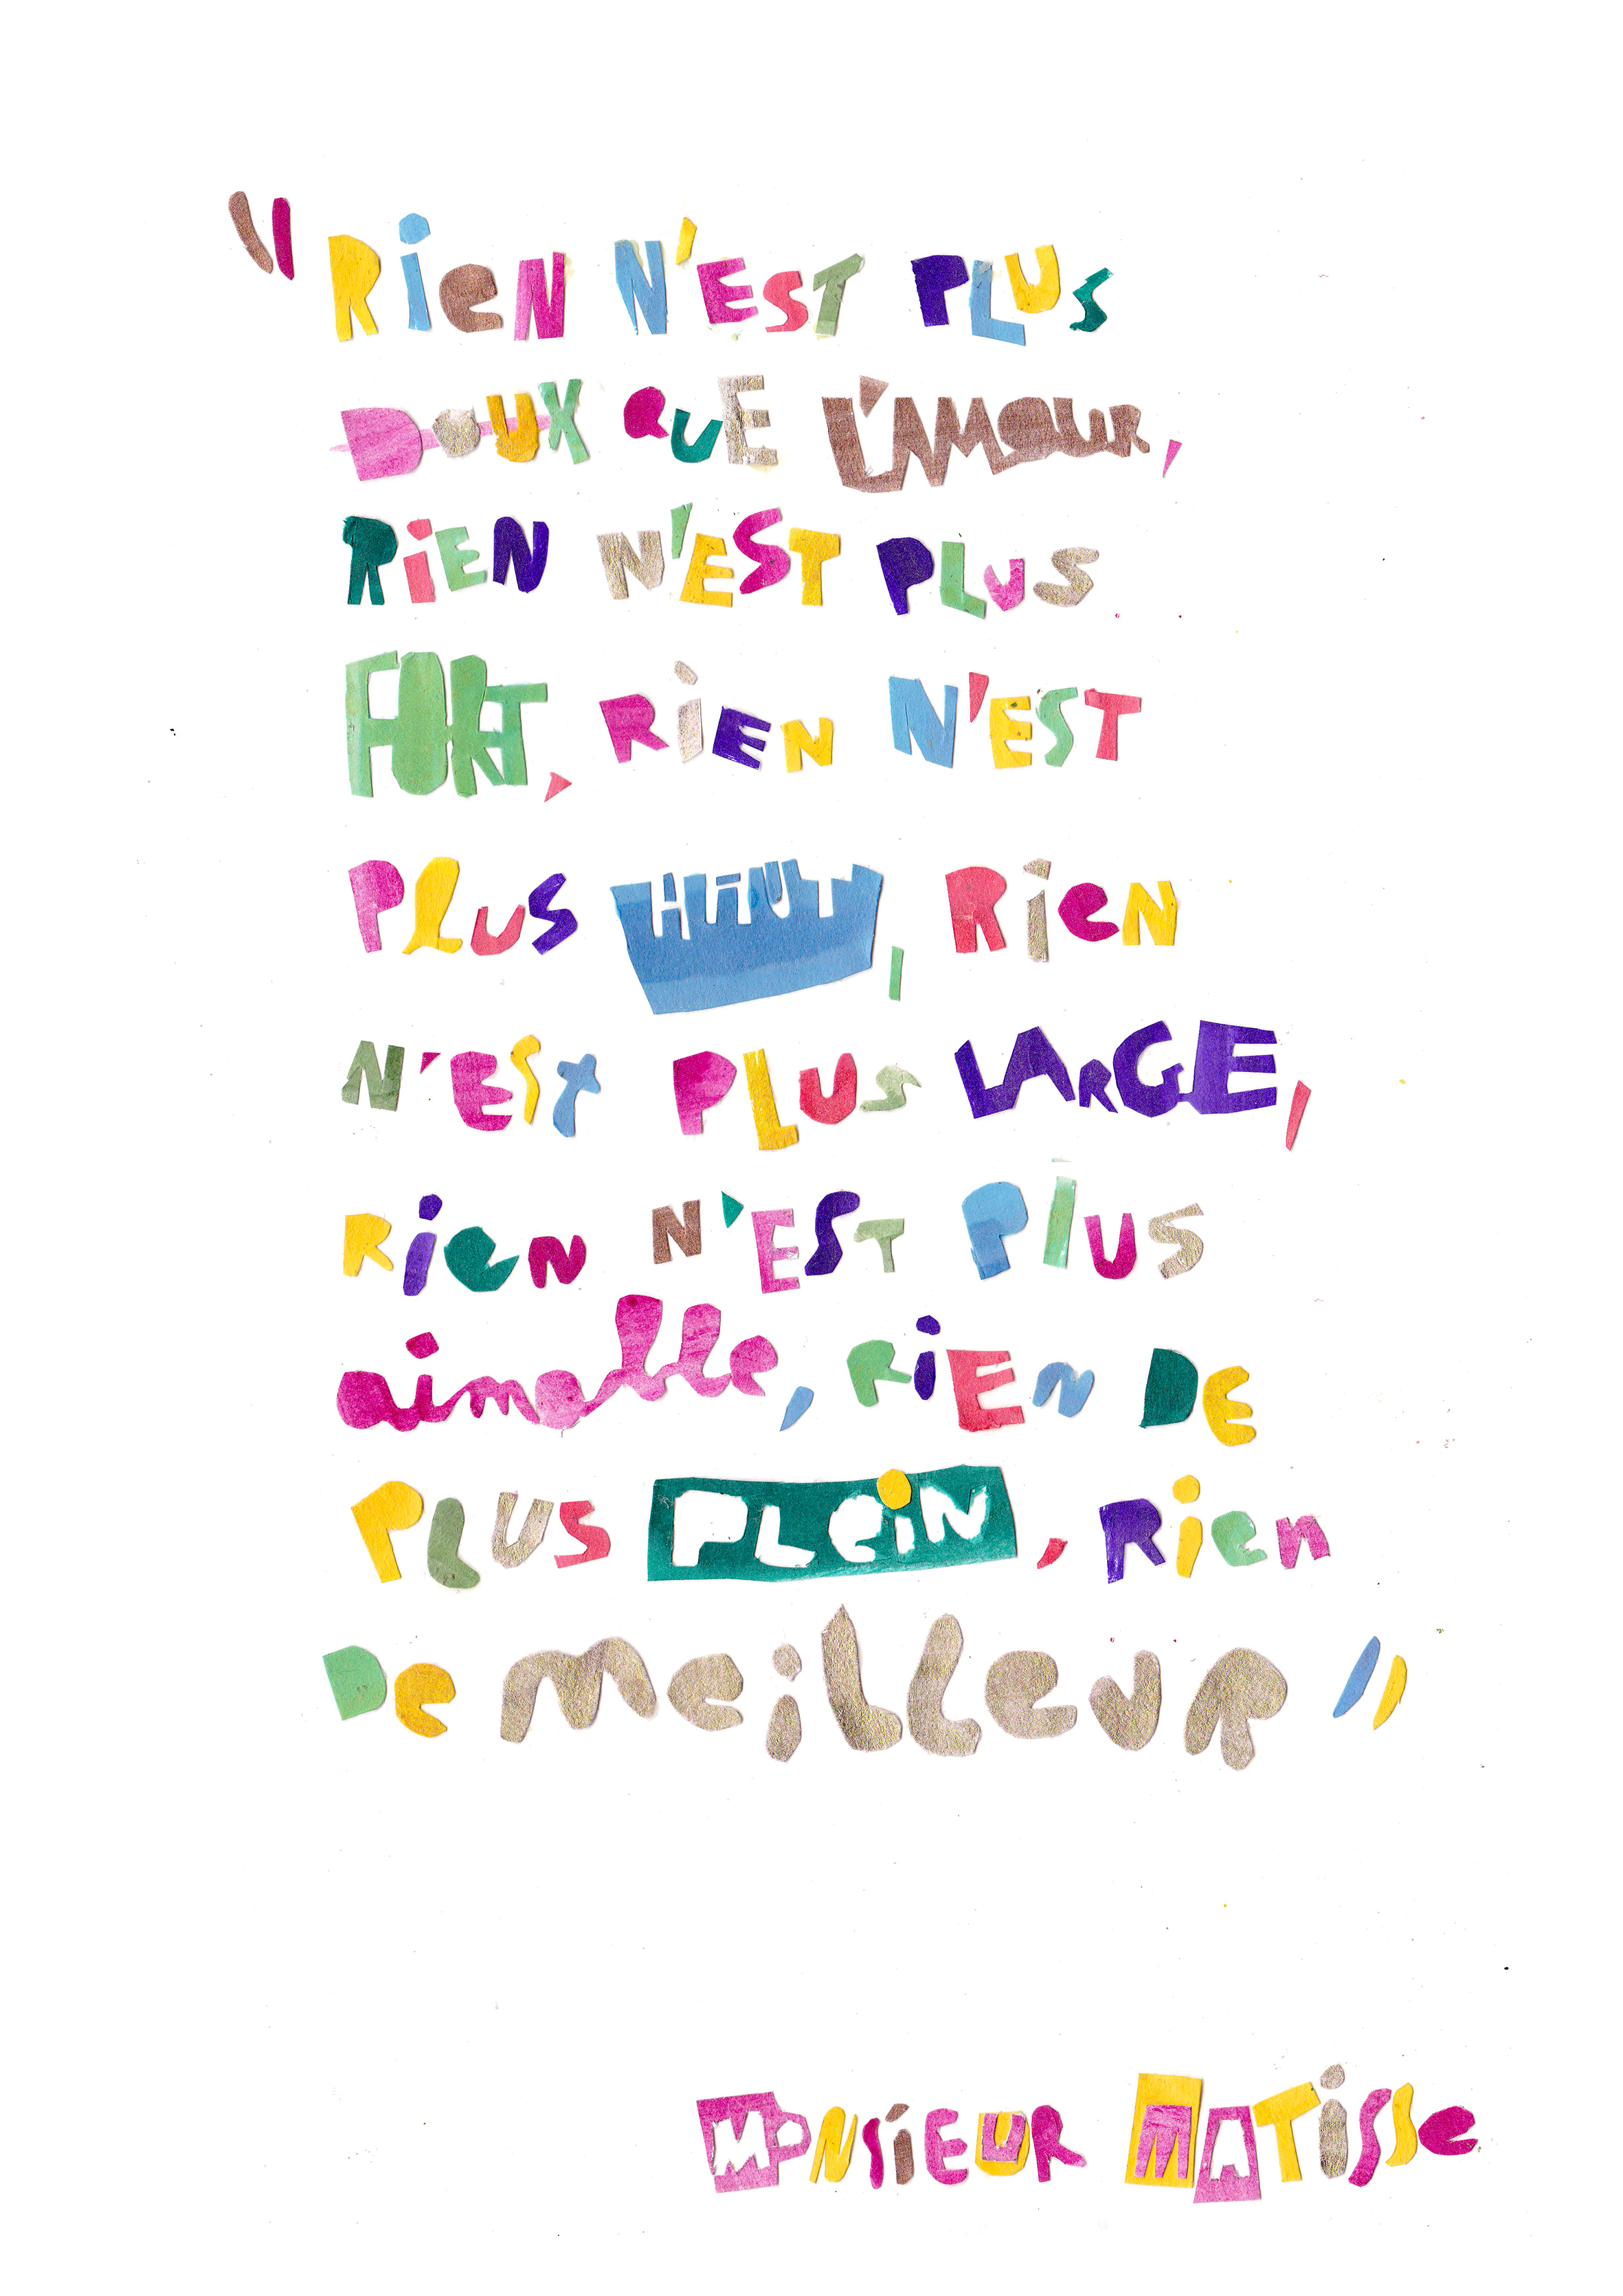 "RiEN N'EST PLUS
DOUX QUE L'AMOUR,
RiEN N'EST PLUS
FORT, RiEN N'EST
PLUS HAUT, RiEN
N'EST PLUS LARGE,
RiEN N'EST PLUS
aimable, RiEN DE
PLUS PLEiN, Rien
De meilleur"
MONSiEUR MATiSSe